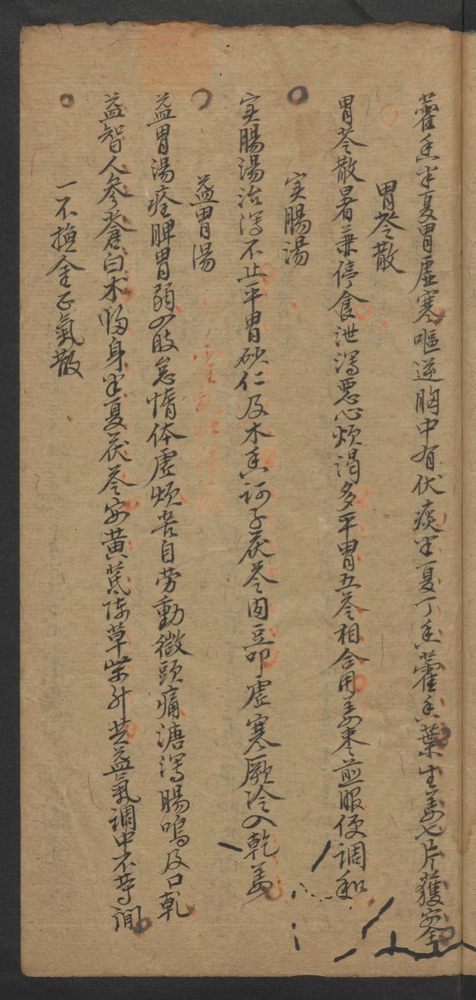 藿香半夏胃虛寒嘔逆胸中有伏痰半夏丁香藿香葉生姜七片獲安全
胃苓散
胃苓散暑兼停食泄瀉惡心煩渴多平胃五苓相合用姜枣煎服便調和
实腸湯
实腸湯治瀉不止平胃砂仁及木香訶子茯苓肉豆叩虛寒厥冷入乾姜
益胃湯
益胃湯痊脾胃弱四肢怠惰体虛煩苦自勞動微頭痛溏瀉腸鳴及口乾
益智人参蒼白术歸身半夏茯苓安黄芪陳草柴升共益氣調中不等閒
一不換金正氣散